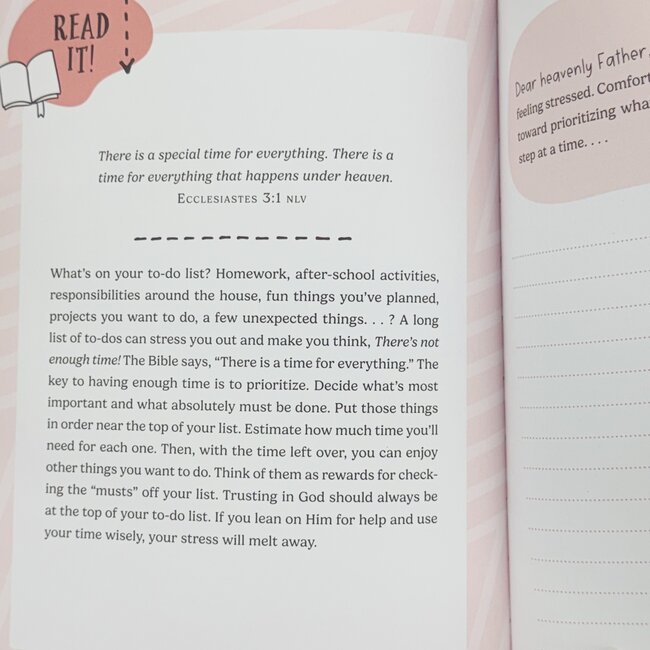 READ
IT!
There is a special time for everything. There is a
time for everything that happens under heaven.
Ecclesiastes 3:1 NLV
What's on your to-do list? Homework, after-school activities,
responsibilities around the house, fun things you've planned,
projects you want to do, a few unexpected things. . . ? A long
list of to-dos can stress you out and make you think, There's not
enough time! The Bible says, “There is a time for everything.” The
key to having enough time is to prioritize. Decide what's most
important and what absolutely must be done. Put those things
in order near the top of your list. Estimate how much time you'll
need for each one. Then, with the time left over, you can enjoy
other things you want to do. Think of them as rewards for check-
ing the “musts” off your list. Trusting in God should always be
at the top of your to-do list. If you lean on Him for help and use
your time wisely, your stress will melt away.
Dear heavenly Father,
feeling stressed. Comfort
toward prioritizing wha
step at a time. . . .